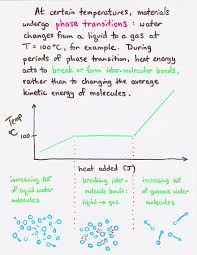 At certain temperatures, materials
undergo phase transitions: water
changes from a liquid to a gas at
T = 100°C, for example. During
periods of phase transition, heat energy
acts to break or form inter-molecular bonds,
rather than to changing the average
kinetic energy of molecules.
Temp
°C
heat added (J)
increasing KE
of liquid water
molecules
breaking inter-
molecule bonds:
liquid → gas
increasing KE
of gaseous water
molecules